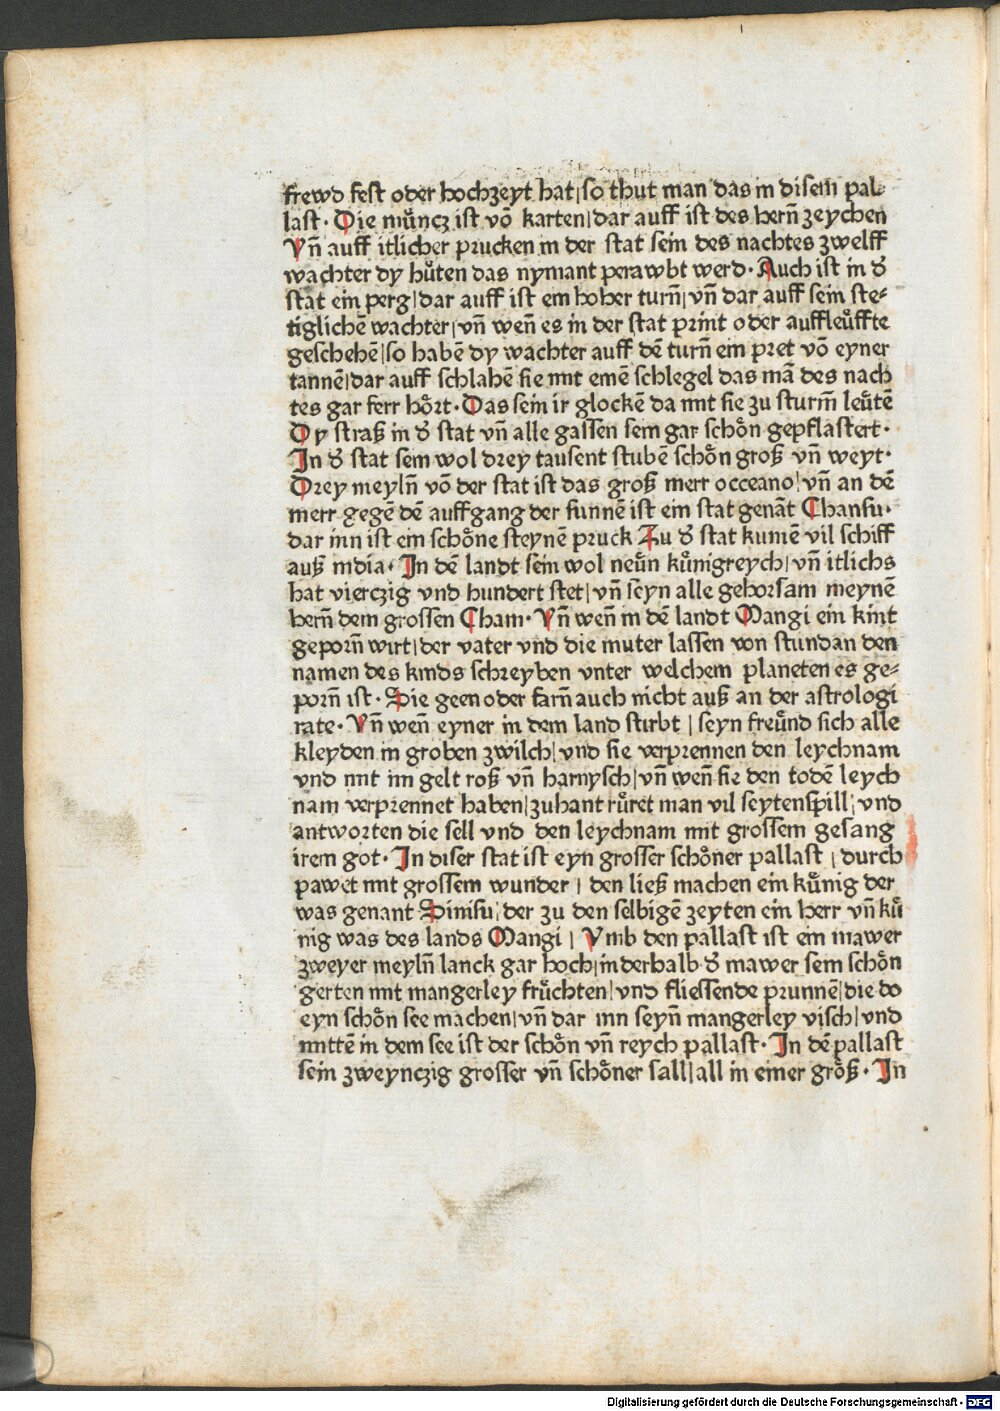 frewd fest oder hochzeyt hat/so thut man das in disem pal⸗
last. Die mu̇ncz ist vō karten/dar auff ist des hern̄ zeychen
Vn̄ auff itlicher prucken in der stat sein des nachtes zwelff
wachter dy hu̇ten das nymant perawbt werd. Auch ist in đ
stat ein perg/dar auff ist ein hoher turn̄/vn̄ dar auff sein ste⸗
tiglichē wachter/vn̄ wen̄ es in der stat print oder auffleu̇ffte
geschehē/so habē dy wachter auff dē turn̄ ein pret vō eyner
tannē/dar auff schlahē sie mit einē schlegel das mā des nach
tes gar ferr hȯrt. Das sein ir glockē da mit sie zu sturm̄ leu̇tē
Dy straß in đ stat vn̄ alle gassen sein gar schȯn gepflastert.
In đ stat sein wol drey tausent stubē schȯn groß vn̄ weyt.
Drey meyln̄ vō der stat ist das groß merr occeano/vn̄ an dē
merr gegē dē auffgang der sunnē ist ein stat genāt Chansu.
dar inn ist ein schȯne steynē pruck Zu đ stat kumē vil schiff
auß india. In dē landt sein wol neu̇n ku̇nigreych/vn̄ itlichs
hat vierczig vnd hundert stet/vn̄ seyn alle gehorsam meynē
hern̄ dem grossen Cham. Vn̄ wen̄ in dē landt Mangi ein kint
geporn̄ wirt/der vater vnd die muter lassen von stundan den
namen des kinds schreyben vnter welchem planeten es ge⸗
porn̄ ist. Sie geen oder farn̄ auch nicht auß an der astrologi
rate. Vn̄ wen̄ eyner in dem land stirbt/seyn freu̇nd sich alle
kleyden in groben zwilch/vnd sie verprennen den leychnam
vnd mit im gelt roß vn̄ harnysch/vn̄ wen̄ sie den todē leych
nam verprennet haben/zuhant ru̇ret man vil seytenspill/vnd
antworten die sell vnd den leychnam mit grossem gesang
irem got. In diser stat ist eyn grosser schȯner pallast/durch
pawet mit grossem wunder/den ließ machen ein ku̇nig der
was genant Sinisu/der zu den selbigē zeyten ein herr vn̄ ku̇
nig was des lands Mangi/Vmb den pallast ist ein mawer
zweyer meyln̄ lanck gar hoch/inderhalb đ mawer sein schȯn
gerten mit mangerley fru̇chten/vnd fliessende prunnē/die do
eyn schȯn see machen/vn̄ dar inn seyn̄ mangerley visch/vnd
mittē in dem see ist der schȯn vn̄ reych pallast. In dē pallast
sein zweynczig grosser vn̄ schȯner sall/all in einer grȯß. In
Digitalisierung gefördert durch die Deutsche Forschungsgemeinschaft - DFG